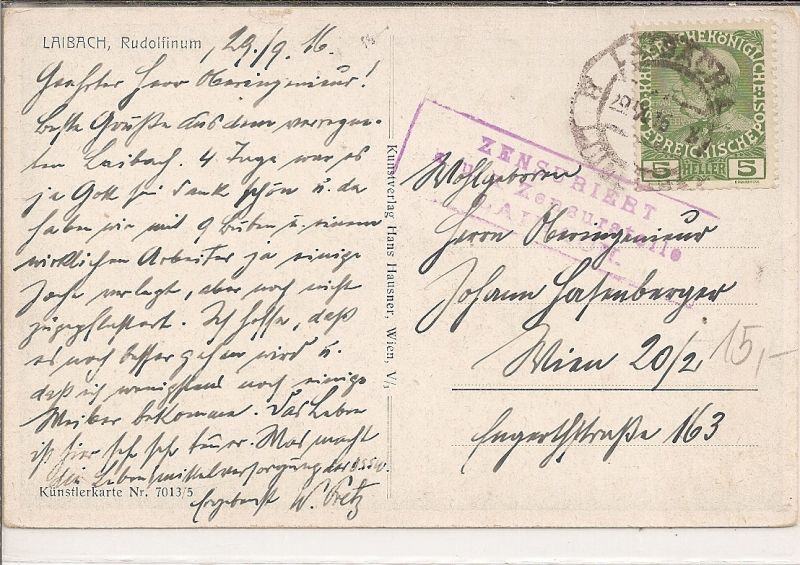 LAIBACH, Rudolfinum
29./9. 16.
Geehrter Herr Oberingenieur!
Beste Grüße aus dem verregne-
ten Laibach. 4 Tage war es
ja Gott sei Dank schön u. da
haben wir mit 9 Buben u. einem
wirklichen Arbeiter ja einige
Joche verlegt, aber noch nicht
zugepflastert. Ich hoffe, daß
es noch besser gehen wird u.
daß ich wenigstens noch einige
Weiber bekomme. Das Leben
ist hier sehr sehr teuer. Was macht
die Lebensmittelversorgung der
Ergebenst W.
Künstlerkarte Nr. 7013/5
Kunstverlag Hans Hausner, Wien, V/1
ZENSURIERT
Zensurstelle
LAIBACH
KAISERLICHEKÖNIGLICHE
ÖSTERREICHISCHE POST
5 HELLER 5
Wohlgeboren
Herrn Oberingenieur
Johann Hafenberger
Wien 20/2
Engerthstraße 163
15,-